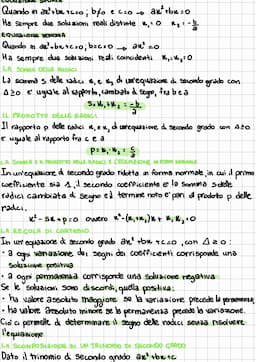 EQUAZIONE SPURIA
Quando in ax²+bx+c=0; b≠0 e c=0 → ax²+bx=0
Ha sempre due soluzioni reali distinte x₁=0 x₂=-b/a
EQUAZIONE MONOMIA
Quando in ax²+bx+c=0; b=c=0 → ax²=0
Ha sempre due soluzioni reali coincidenti x₁,x₂=0
LA SOMMA DELLE RADICI
La somma s delle radici x₁ e x₂ di un'equazione di secondo grado con
Δ≥0 e uguale al rapporto, cambiato di segno, fra b e a
s=x₁+x₂=-b/a
IL PRODOTTO DELLE RADICI
Il rapporto p delle radici x₁ e x₂ di un'equazione di secondo grado con Δ≥0
e uguale al rapporto fra c e a
p=x₁·x₂=c/a
LA SOMMA E IL PRODOTTO DELLE RADICI E L'EQUAZIONE IN FORMA NORMALE
In un'equazione di secondo grado ridotta in forma normale, in cui il primo
coefficiente sia 1, il secondo coefficiente e la somma s delle
radici cambiata di segno ed il termine noto e' pari al prodotto p delle
radici.
x²-sx+p=0 ovvero x²-(x₁+x₂)x+x₁·x₂=0
LA REGOLA DI CARTESIO
In un'equazione di secondo grado ax²+bx+c=0, con Δ≥0:
• a ogni variazione dei segni dei coefficienti corrisponde una
soluzione positiva
• a ogni permanenza corrisponde una soluzione negativa
Se le soluzioni sono discordi, quella positiva:
• ha valore assoluto maggiore se la variazione precede la permanenza
• ha valore assoluto minore se la permanenza precede la variazione.
Cio' ci permette di determinare il segno delle radici senza risolvere
l'equazione.
LA SCOMPOSIZIONE DI UN TRINOMIO DI SECONDO GRADO
Dato il trinomio di secondo grado ax²+bx+c